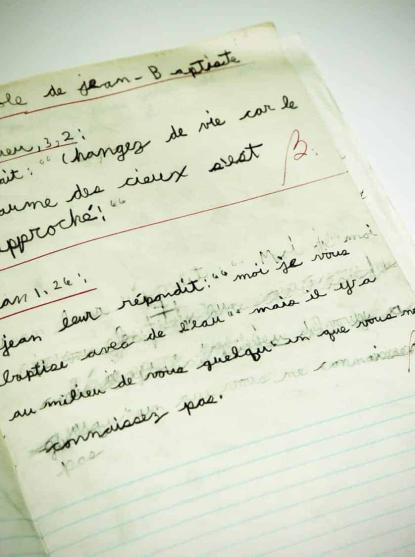 de jean-Baptiste
3,2:
: "Changez de vie car le
des cieux s'est
approché! "
B:
1,26:
jean leur répondit: " moi je vous
baptise avec de l'eau " mais il y a
au milieu de vous quelqu'un que vous
connaissez pas.